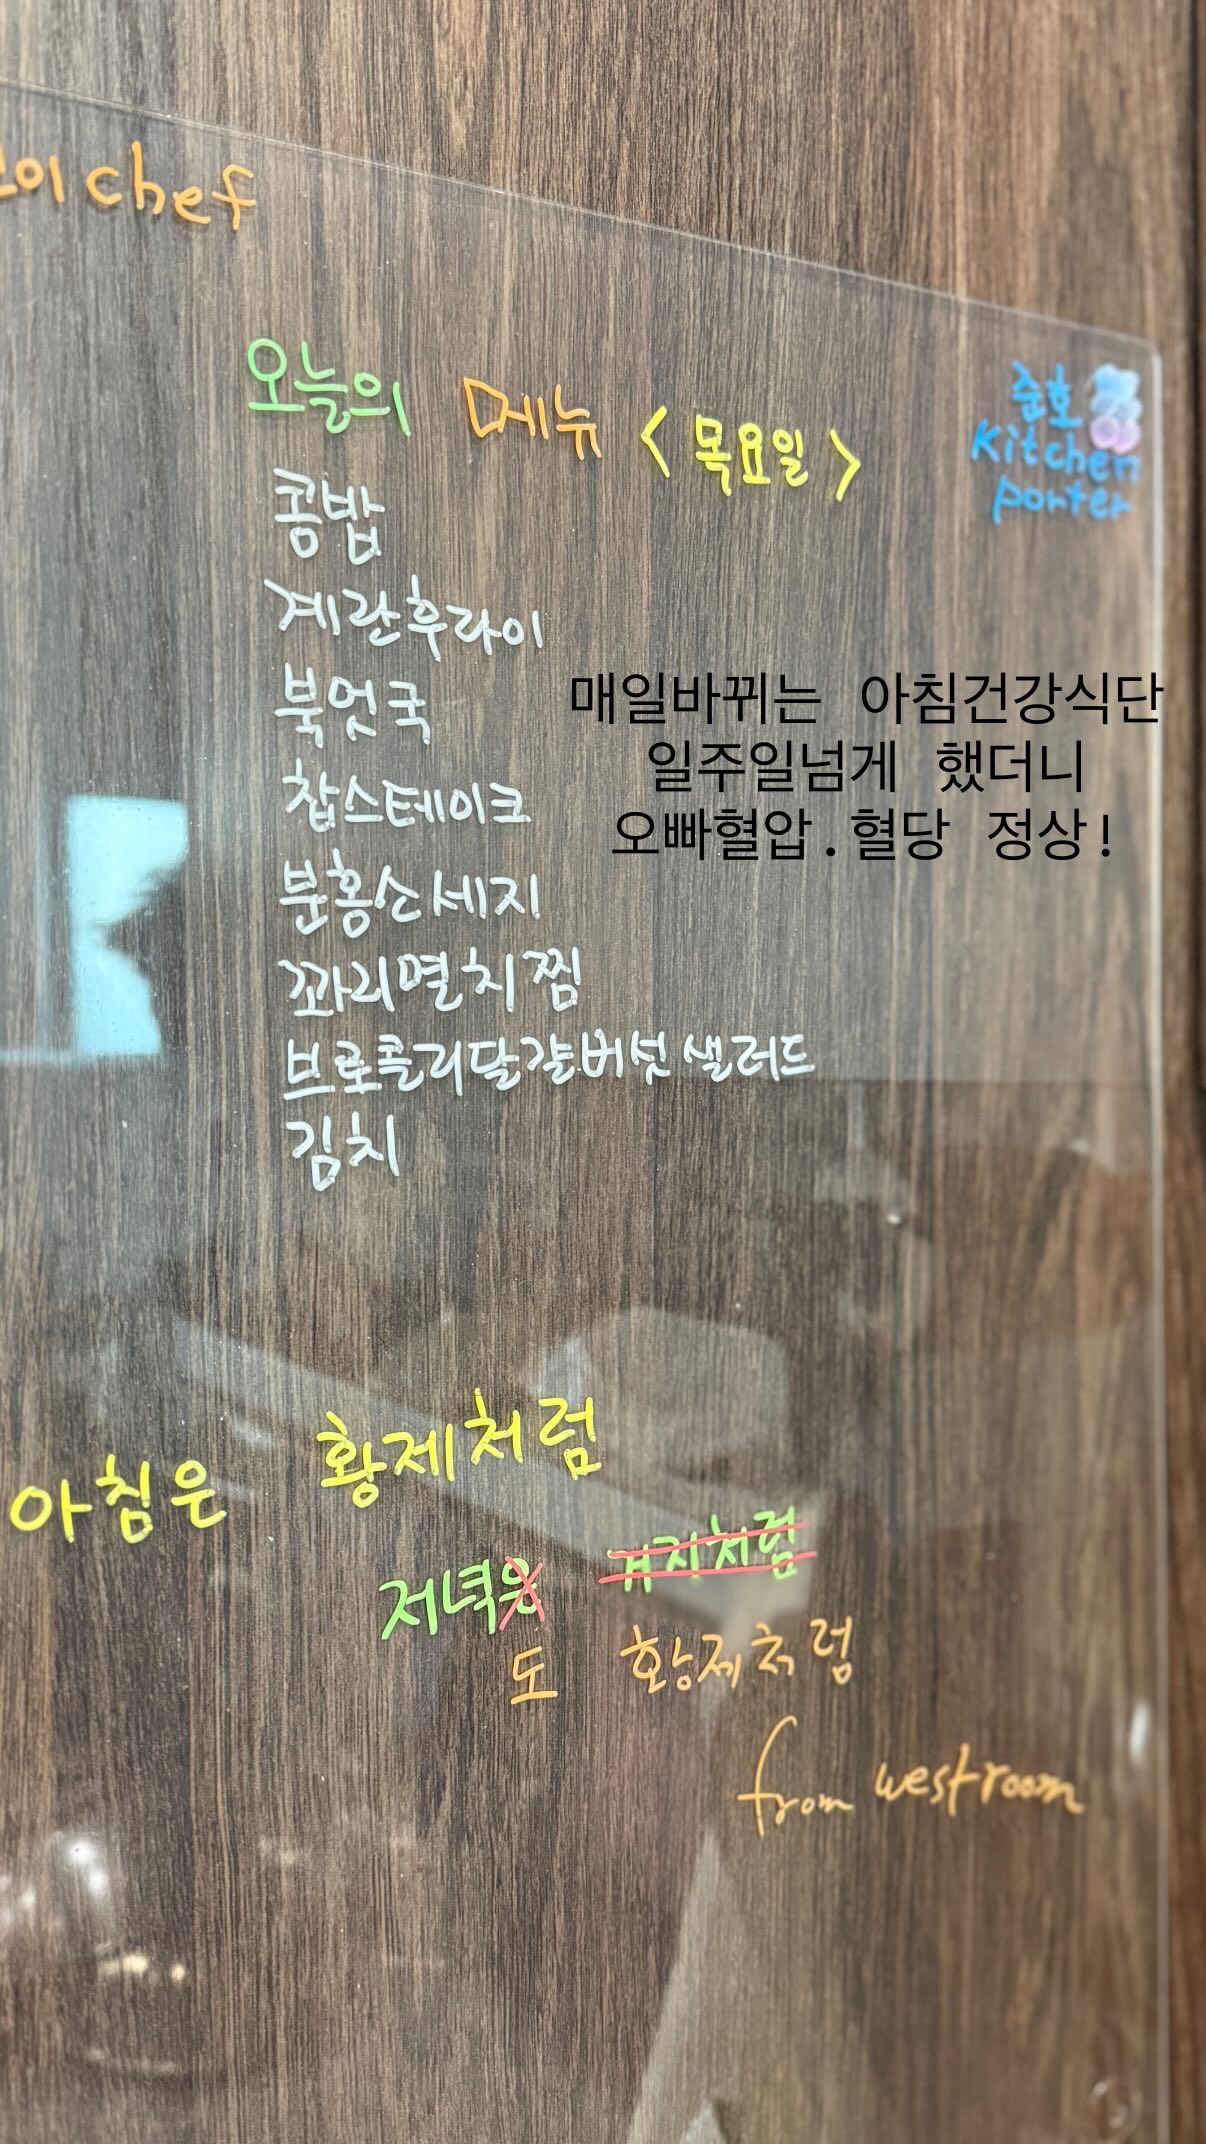 chef
오늘의 메뉴 <목요일>
준호
Kitchen
porter
콩밥
계란후라이
북엇국
찹스테이크
분홍소세지
꽈리멸치찜
브로콜리달걀버섯샐러드
김치
매일바뀌는 아침건강식단
일주일넘게 했더니
오빠혈압.혈당 정상!
아침은 황제처럼
저녁은 거지처럼
도 황제처럼
from westroom